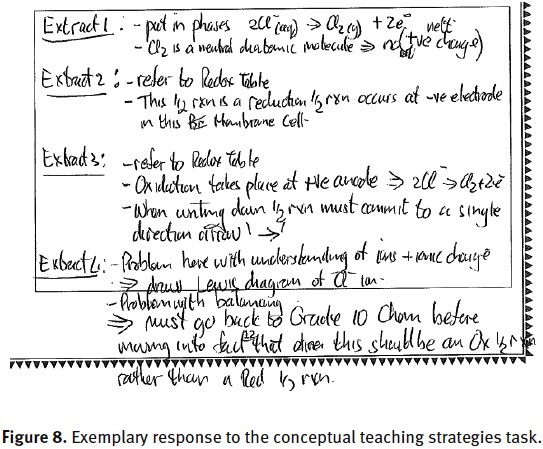 Extract 1: - put in phases 2Cl⁻(aq) → Cl₂(g) + 2e⁻
- Cl₂ is a neutral diatomic molecule ⇒ no (+ve charge)
Extract 2: - refer to Redox Table
- This ½ rxn is a reduction ½ rxn occurs at -ve electrode
in this Membrane Cell-
Extract 3: - refer to Redox Table
- Oxidation takes place at +ve anode ⇒ 2Cl⁻ → Cl₂ + 2e⁻
- When writing down ½ rxn must commit to a single
direction arrow ! →
Extract 4: - Problem here with understanding of ions + ionic charge
⇒ draw Lewis diagram of Cl⁻ ion-
- Problem with balancing
⇒ must go back to Grade 10 Chem before
moving into fact that this should be an Ox ½ rxn
rather than a Red ½ rxn.
Figure 8. Exemplary response to the conceptual teaching strategies task.